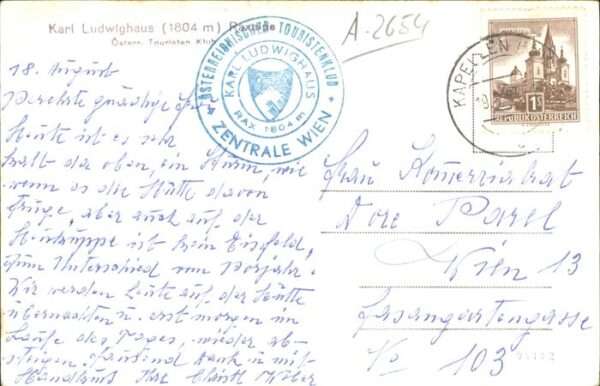 Karl Ludwighaus (1804 m) Raxalpe
Österr. Touristen Klub
A-2654
ÖSTERREICHISCHER TOURISTENKLUB
KARL LUDWIGHAUS
RAX 1804 m
ZENTRALE WIEN
KAPELLEN
1S
REPUBLIK ÖSTERREICH
18. August
Verehrte gnädige Frau
Heute ist es sehr
kalt da oben, ein Sturm, wie
wenn es die Hütte davon
trüge, aber auch auf der
Heukuppe ist kein Eisfeld,
zum Unterschied vom Vorjahr.
Wir werden heute auf der Hütte
übernachten u. erst morgen im
Laufe des Tages, wieder ab-
steigen. Tausend Dank u. mit
Handkuss Ihr
Frau Komerzialrat
Dore
Wien 13
Fasangartengasse
No 103